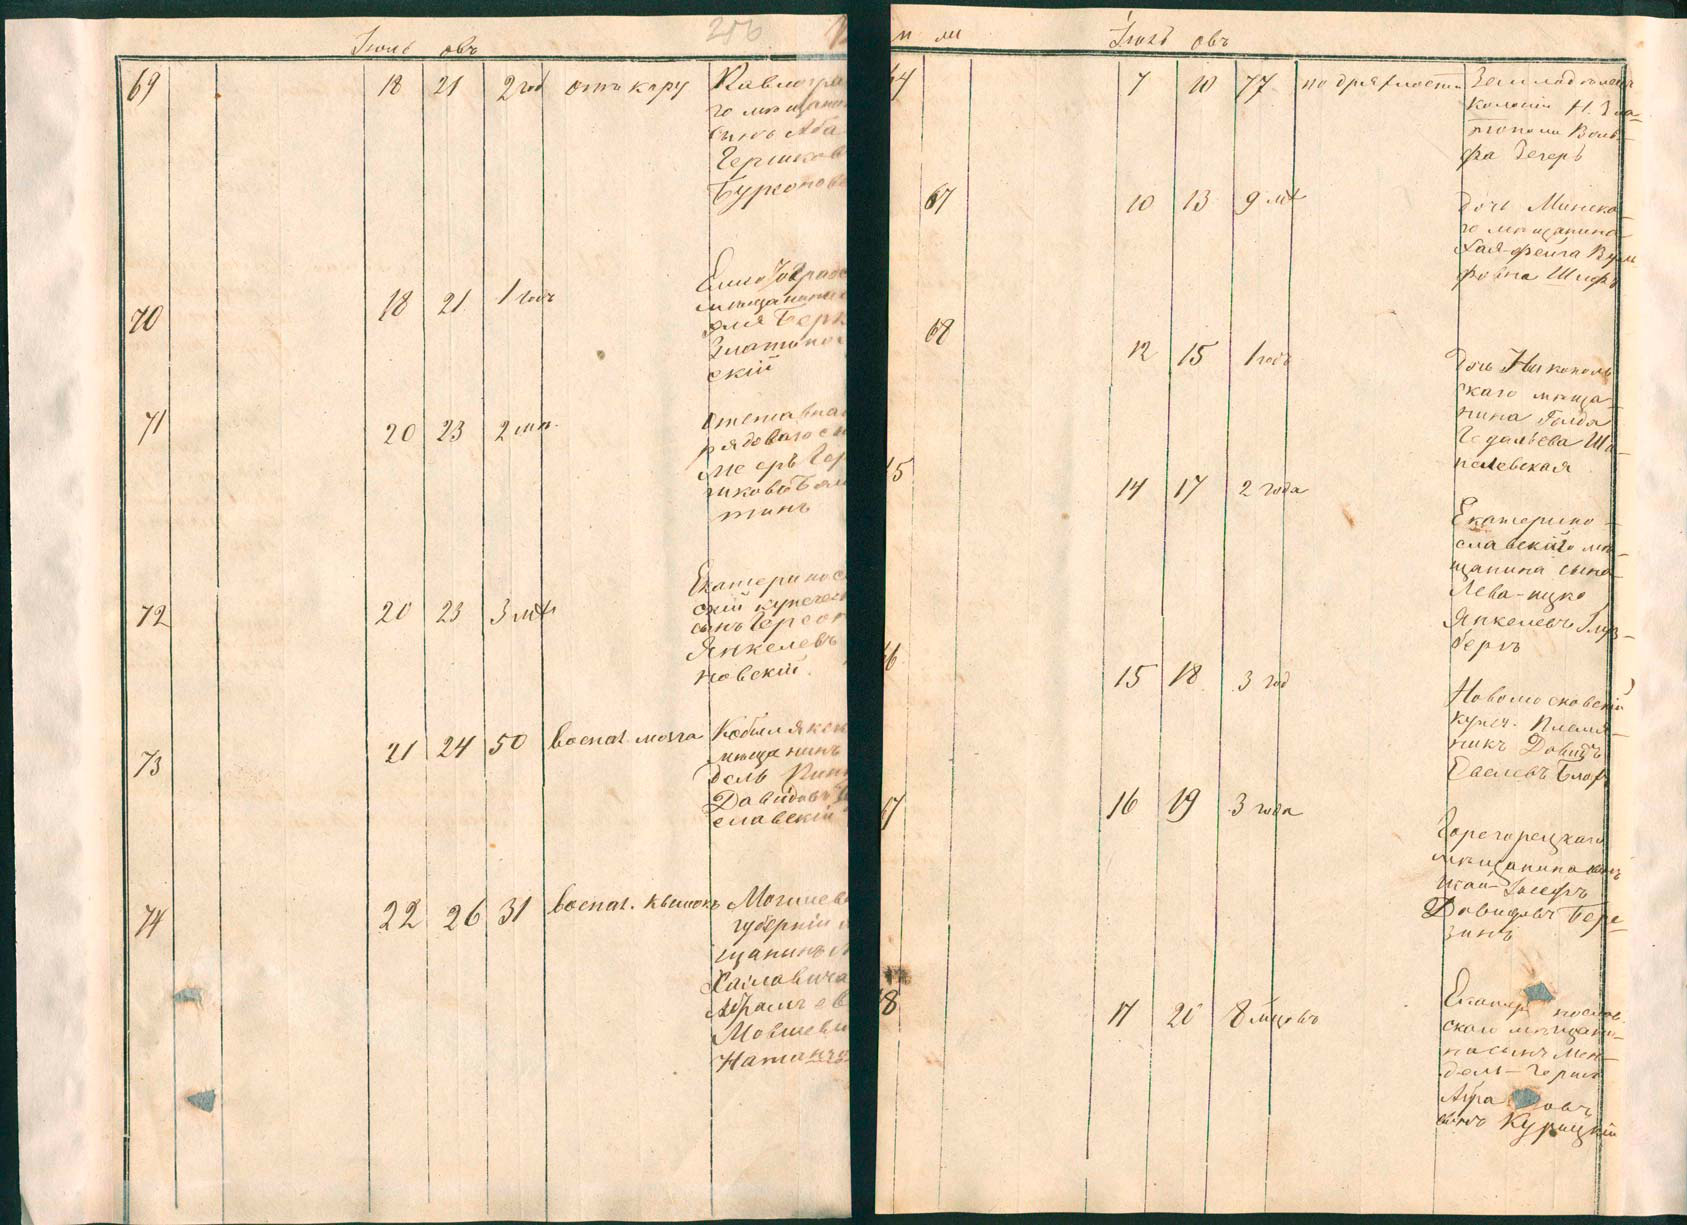 256
Іюль овъ
69 18 21 2 год отъ кару Павлогра
го мѣщанин
сынъ Аба
Гершков
Бурконов
70 18 21 1 годъ
мѣщанин
Берк
Златопо
скій
71 20 23 2 мц. Отставна
рядоваго
Мееръ Гер
шковъ
тинъ
72 20 23 3 мц Екатеринос
скій купечес
сынъ Герсон
Янкелевъ
новскій.
73 21 24 50 воспал. мозга Кобелякск
мѣщанинъ
Давидовъ
славскій
74 22 26 31 воспал. кишокъ Могилев
губерніи м
щанинъ
Хаславича
Абрамъ
Мовшев
Натан
м ли Іюль овъ
64 7 10 77 по дряхлости Земледѣлецъ
колоніи Н. Зла-
тополи Воль-
фа Зегеръ
67 10 13 9 мц дочь Минска-
го мѣщанина
Хая-Фейга Вуль
фовна Шифръ
68 12 15 1 годъ дочь Никополь
скаго мѣща-
нина Голда
Гедальева Ша-
пелевская
65 14 17 2 года Екатерино-
славскаго мѣ-
щанина сына
Лева-Ицко
Янкелевъ Глуз-
бергъ
66 15 18 3 год Новомосковскій
купеч. племя-
никъ Давидъ
67 16 19 3 года Горегорецкаго
мѣщанина сынъ
Іосифъ
Давидовъ Бере-
зинъ
68 17 20 8 мѣцовъ Екатеринослав
скаго мѣщани-
на сынъ Мен-
дель-Герш
Абра овъ
Курицкій